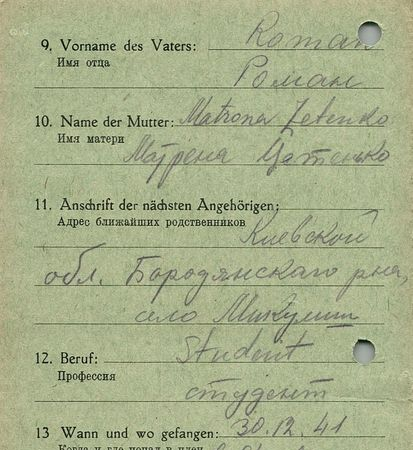 9. Vorname des Vaters: Roman
Имя отца
Роман
10. Name der Mutter: Matrona Zetenko
Имя матери
Мотрена Цатенько
11. Anschrift der nächsten Angehörigen:
Адрес ближайших родственников
Киевской
обл. Бородянскаго р-на,
село Микуличи
12. Beruf: Student
Профессия
студент
13 Wann und wo gefangen: 30.12.41
Когда и где попал в плен